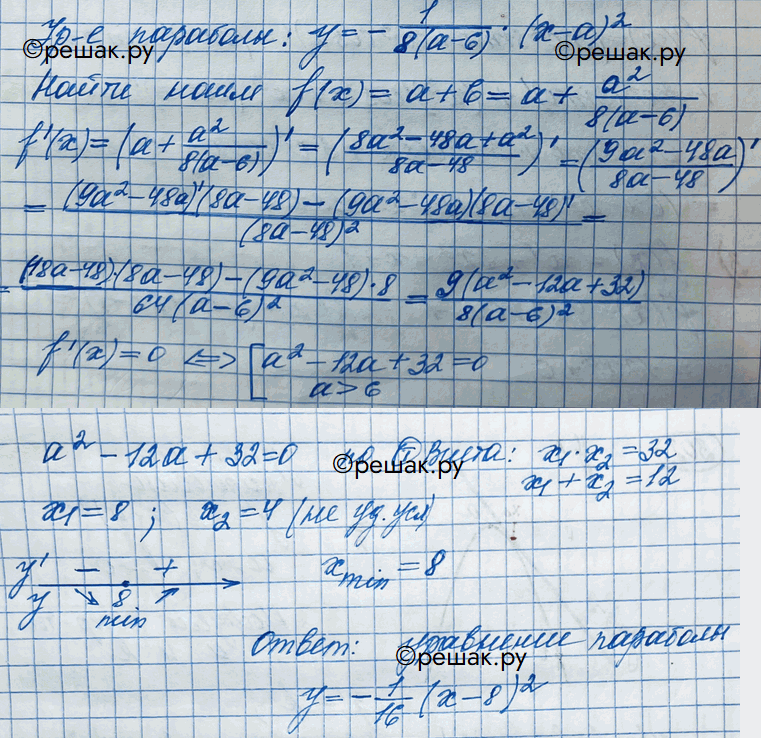 Ур-е параболы: y = - 1/(8(a-6)) · (x-a)²
©решак.ру ©решак.ру
Найти наим f(x) = a + b = a + a²/(8(a-6))
f'(x) = (a + a²/(8(a-6)))' = ((8a²-48a+a²)/(8a-48))' = ((9a²-48a)/(8a-48))'
= ((9a²-48a)'(8a-48) - (9a²-48a)(8a-48)')/(8a-48)² =
©решак.ру ©решак.ру
= ((18a-48)·(8a-48) - (9a²-48)·8)/(64(a-6)²) = 9(a²-12a+32)/(8(a-6)²)
f'(x) = 0 <=> [ a² - 12a + 32 = 0
a > 6
a² - 12a + 32 = 0 по т Виета: x₁·x₂ = 32
©решак.ру
x₁ + x₂ = 12
x₁ = 8 ; x₂ = 4 (не уд. усл)
y' − + xmin = 8
y 8
min
Ответ: уравнение параболы
©решак.ру
y = - 1/16 (x-8)²